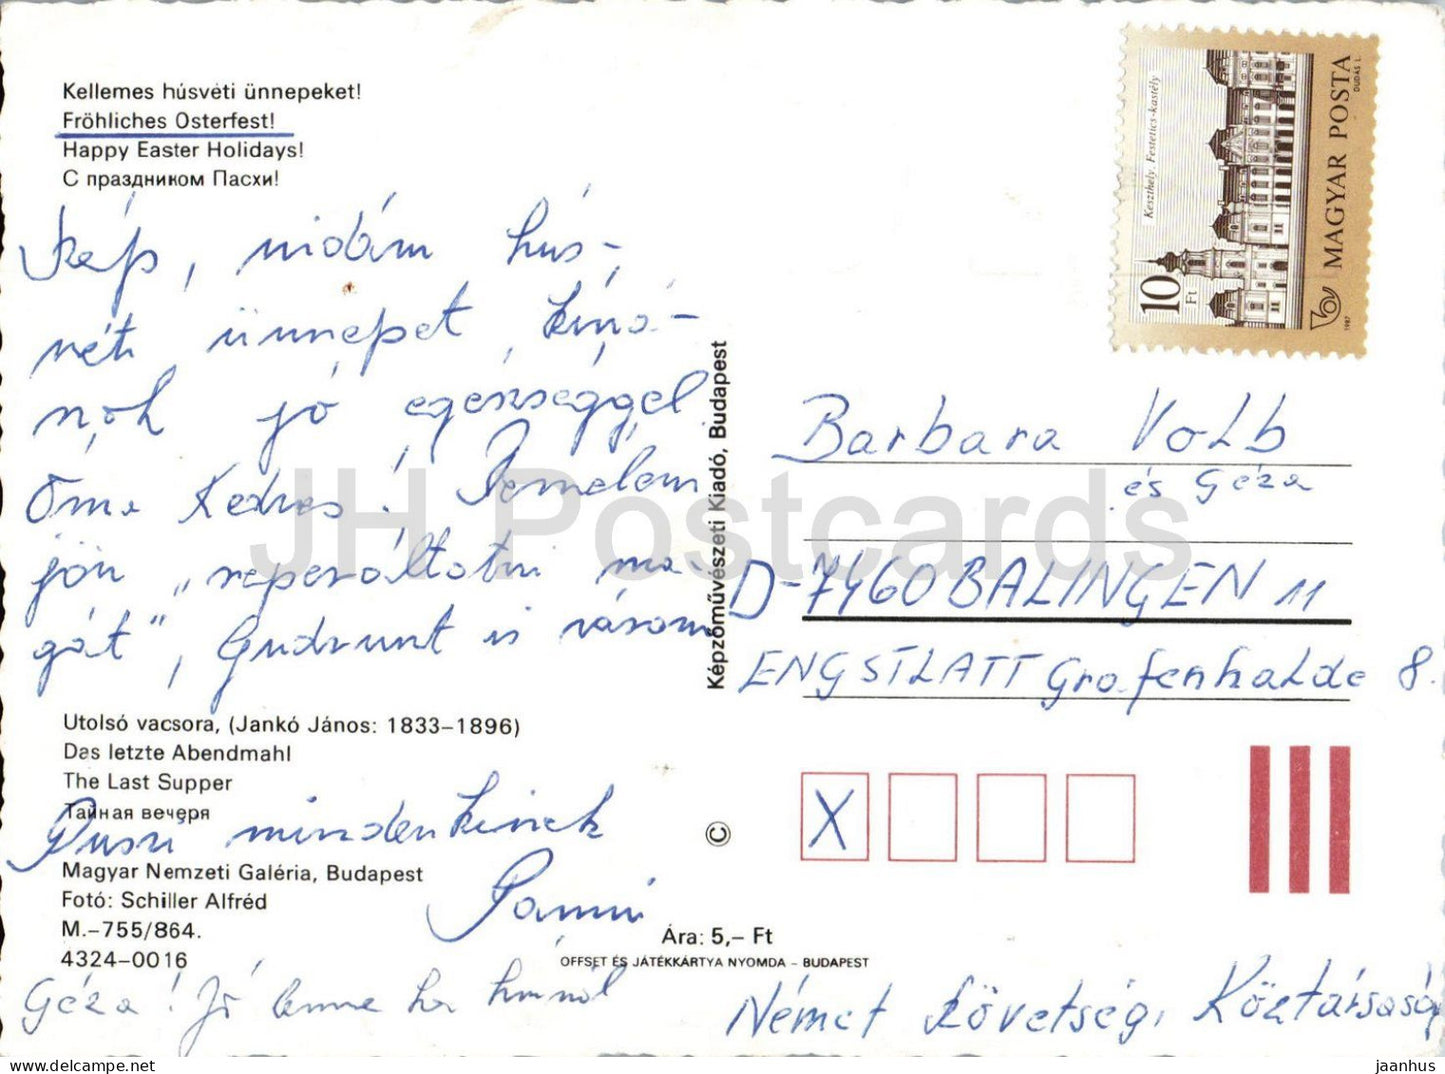 Kellemes húsvéti ünnepeket!
Fröhliches Osterfest!
Happy Easter Holidays!
С праздником Пасхи!
Szép, vidám hús-
véti ünnepet kíná-
nok jó egészséggel
Öma Kedves! Remélem
jön „reperáltatni ma-
gát", Gudrunt is várom
Utolsó vacsora, (Jankó János: 1833–1896)
Das letzte Abendmahl
The Last Supper
Тайная вечеря
Puszi mindenkinek
Magyar Nemzeti Galéria, Budapest
Fotó: Schiller Alfréd
M.–755/864.
4324–0016
Ára: 5,– Ft
OFFSET ÉS JÁTÉKKÁRTYA NYOMDA – BUDAPEST
Géza! Jó lenne ha
Képzőművészeti Kiadó, Budapest
©
10 Ft
Keszthely, Festetics-kastély
MAGYAR POSTA
DUDÁS L.
1987
Barbara Volb
és Géza
D-7460 BALINGEN 11
ENGSTLATT Grafenhalde 8.
X
Német Szövetség, Köztársaság
JH Postcards
jaanhus